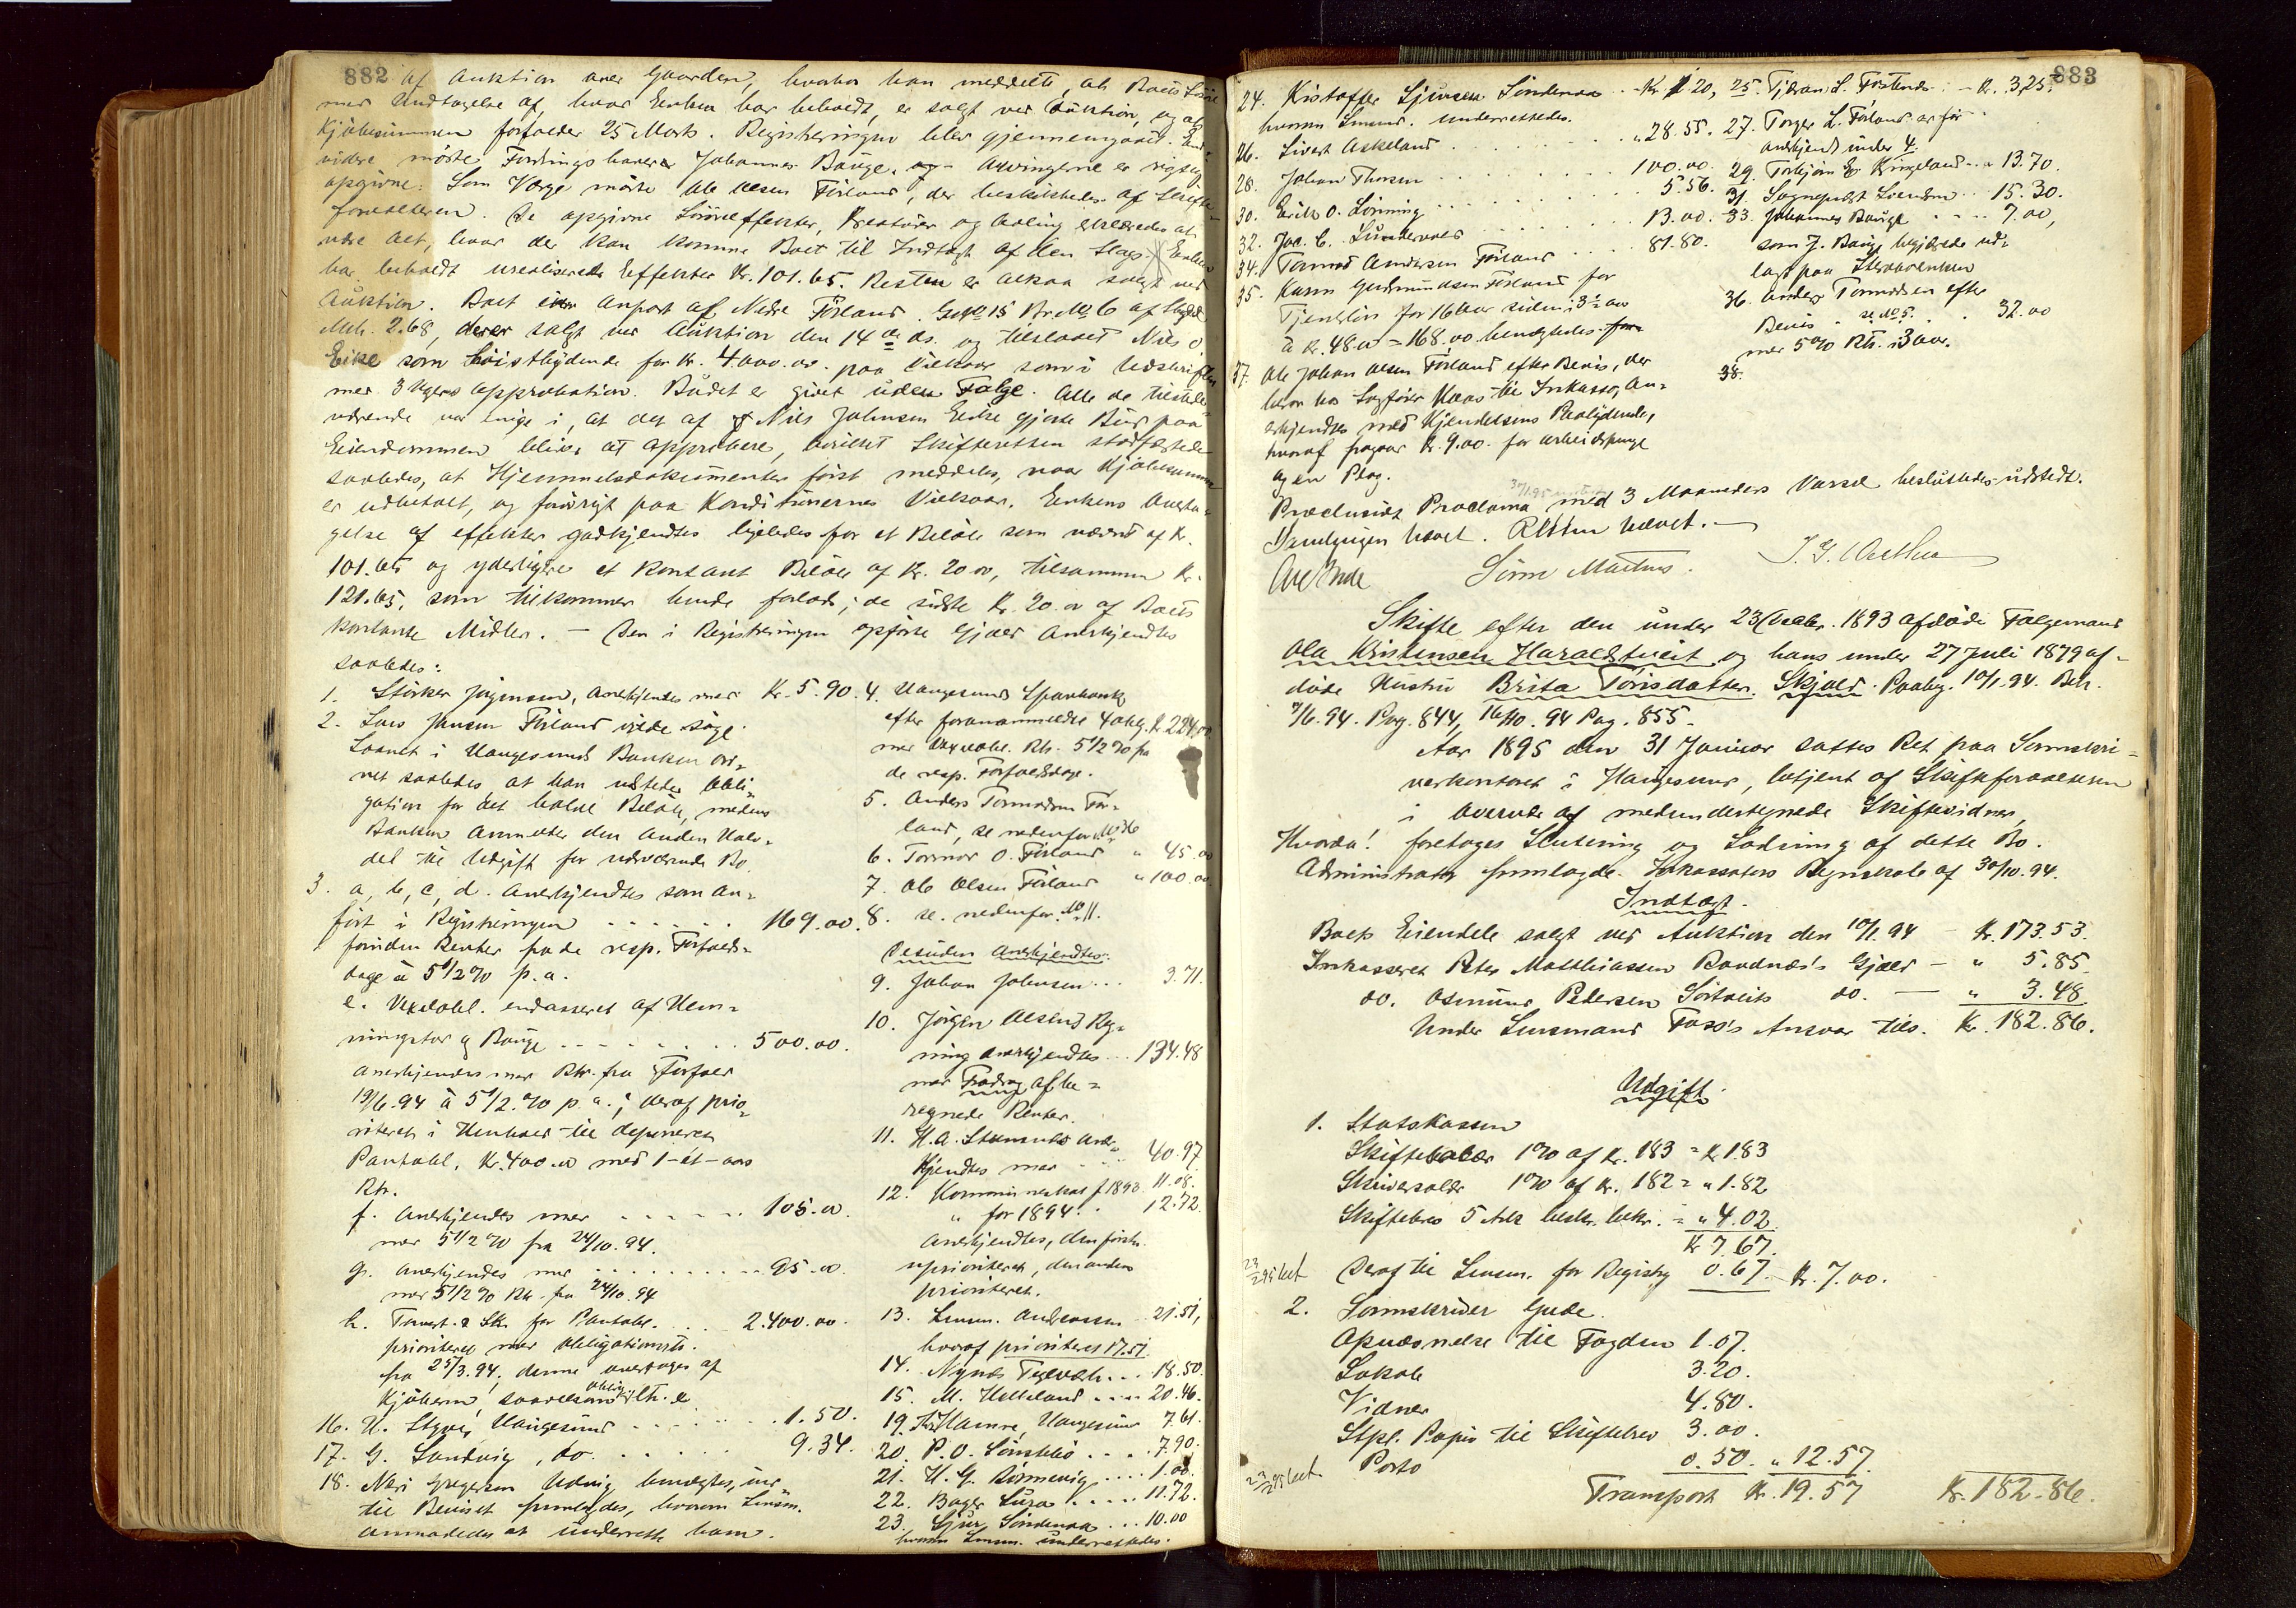 882
af Auktion over Gaarden, hvorhos han meddelte, at Boets Løsøre
med Undtagelse af, hvad Enken har beholdt, er solgt ved Auktion, og at
Kjøbesummen forfalder 25 Marts. Registreringen blev gjennemgaaet. End-
videre mødte Fordringshaver Johannes Bauge. Arvingerne er rigtig
opgivne. Som Værge mødte Ole Olsen Førland, der beskikkedes af Skifte-
forvalteren. De opgivne Løsøreeffekter, Kreaturer og Avling erklæredes at
være alt, hvad der kan komme Boet til Indtægt af den Slags. Enken
har beholdt urealiserede Effekter Kr. 101.65. Resten er altsaa solgt ved
Auktion. Boet eier Anpart af Nedre Førland G.No 15 Br.No 6 af Skyld
Mrk. 2.68, der er solgt ved Auktion den 14de ds. og tilslaaet Nils J.
Eike som Høistbydende for Kr. 4000.00 paa Vilkaar som i Udskriften
med 3 Ugers Approbation. Budet er givet uden Følge. Alle de tilstede-
værende var enige i, at det af Nils Johnsen Eike gjorte Bud paa
Eiendommen bliver at approbere, hvilket Skifteretten stadfæstede
saaledes, at Hjemmelsdokumenter først meddeles, naar Kjøbesummen
er udbetalt, og forøvrigt paa Konditionernes Vilkaar. Enkens Overta-
gelse af Effekter godkjendtes ligeledes for et Beløb som nævnt af Kr.
101.65 og yderligere et kontant Beløb af Kr. 20.00, tilsammen Kr.
121.65, som tilkommer hende forlods; de sidste Kr. 20.00 af Boets
kontante Midler. – Den i Registreringen opførte Gjæld anerkjendtes
saaledes:
1. Størker Jørgensen, anerkjendes med Kr. 5.90.
2. Lars Jansen Førland vilde søge
Laanet i Haugesunds Banken ord-
net saaledes at han udsteder Obli-
gation for det halve Beløb, medens
Banken anmelder den anden Halv-
del til Udgift for nærværende Bo.
3. a, b, c, d. Anerkjendtes som an-
ført i Registreringen . . . . . . 169.00.
foruden Renter fra de resp. Forfalds-
dage à 5 1/2 % p. a.
e. Vexelobl. endosseret af Hen-
ningstad & Bauge - - - - - - 500.00.
anerkjendes med Rtr. fra Forfald
19/6.94 à 5 1/2 % p. a.; deraf prio-
riteret i Henhold til deponeret
Pantobl. Kr. 400.00 med 1-et-aars
Rtr.
f. anerkjendes med . . . . . . 105.00.
med 5 1/2 % fra 24/10.94.
g. anerkjendes med . . . . . . 95.00.
med 5 1/2 % Rtr. fra 24/10.94
h. Torvest. & Sk. for Pantobl. . . . 2.400.00.
prioriteret med Obligationsrtr.
fra 25/3.94, denne overtages af
Kjøberen, saavelsom oblig. Litr. e
16. H. Styve, Haugesund . . . . . 1.50.
17. G. Sandvig, do. . . . . 9.34.
18. Neri Gregersen Udvig benægtes, ind-
til Beviset fremlægges, hvorom Lensm.
anmodedes at underrette ham.
4. Haugesunds Sparebank
efter forananmeldte 4 oblg. Kr. 224.00
med Vexelobl. Rtr. 5 1/2 % fra
de resp. Forfaldsdage.
5. Anders Tormodsen Før-
land, se nedenfor No 36
6. Tormod O. Førland " 45.00
7. Ole Olsen Førland " 100.00
8. se. nedenfor No 11.
Desuden anerkjendtes:
9. Johan Johnsen . . . 3.71.
10. Jørgen Olsens Reg-
ning anerkjendtes . . . 134.48
med Fradrag af be-
regnede Renter.
11. H. A. Stensnes aner-
kjendtes med . . . 40.97
12. Kommuneskat f. 1893 11.08.
" for 1894 . . 12.72.
Anerkjendtes, den første
uprioriteret, den anden
prioriteret.
13. Lensm. Andreassen . . 21.51,
hvoraf prioriteret 17.51.
14. . . . 18.50.
15. M. Helleland . . . . 20.46.
19. Hamre, Haugesund 7.61.
20. P. O. Lønstebø . . . . 7.90.
21. H. G. Rømmevig . . . . 1.00.
22. Bager Lura . . . . 11.72.
23. Sjur Søndenaa . . . 10.00
hvorom Lensm. underrettedes.
883
24. Kistoffer Sjursen Søndenaa . . - Kr. 1.20, 25. Tjeran L. Førlands . . - Kr. 3,25.
hvorom Lensmd. underrettedes.
26. Sivert Askeland . . . . . . . " 28.55. 27. Torger L. Førland er før
anerkjendt under 4.
28. Johan Thorsen . . . . . . . 100.00. 29. Torbjørn Kringeland . . " 13.70.
30. Erik O. Lønning . . . . . . . 5.56. 31. Sogneprest Svendsen . . 15.30.
32. Jac. C. Sundervold . . . . . . 13.00. 33. Johannes Bauge . . . . 7.00,
34. Tormod Andersen Førland . . . 81.80. som J. Bauge begjærede ud-
lagt paa Sterboenken
35. Karen Gudmundsen Førland for
Tjenestløn for 16 Uger siden i 3 1/2 aar
à Kr. 48.00 = 168.00 benægtedes
36. Anders Tormodsen efter
Bevis. se No 5. . . 32.00
med 5 % Rtr. i 3 aar.
37. Ole Johan Olsen Førland efter Bevis, der
beror hos Sagfører Haas til Inkasso, an-
erkjendtes med Kjendelsens Paalydende,
hvoraf fragaar Kr. 9.00. for Arbeidspenge
og en Plog.
38.
Præclusivt Proclama med 3 Maaneders Varsel besluttedes udstedt.
Samlingen hævet. Retten hævet. –
Ole Gude Sørn Martens. J. G. Wathne
Skifte efter den under 23 Decbr. 1893 afdøde Følgemand
Ola Kristensen Haraldstveit og hans under 27 Juli 1879 af-
døde Hustru Brita Tørisdatter. Skjold. Paabeg. 10/1.94. Beh.
7/6.94. Pag. 844, 16/10.94 Pag. 855.
Aar 1895 den 31 Januar sattes Ret paa Sorenskri-
verkontoret i Haugesund, betjent af Skifteforvalteren
i Overvær af medundertegnede Skiftevidner,
Hvorda! foretages Slutning og Lodning af dette Bo.
Administrator fremlagde Inkassators Regnskab af 30/10.94.
Indtægt.
Boets Eiendele solgt ved Auktion den 10/1.94 – Kr. 173.53.
Inkasseret Peter Matthiassen Raadnæs's Gjæld – " 5.85.
do. Osmund Pedersen Sørtveits do. – " 3.48
Under Lensmand Foss's Ansvar tils. Kr. 182.86.
Udgift.
1. Statskassen
Skiftesalær 1 % af Kr. 183 = Kr 1.83
Skriversalær 1 % af Kr. 182 = " 1.82
Skiftebrev 5 Ark beskr. bekr. = " 4.02
Kr 7.67.
Deraf til Lensm. for Registrg 0.67. Kr. 7.00.
2. Sorenskriver Gude.
Opnævnelse til Fogden 1.07.
Lokale 3.20.
Vidner 4.80.
Stpl. Papir til Skiftebrev 3.00.
Porto 0.50. " 12.57.
Transport Kr. 19.57 Kr. 182.86.